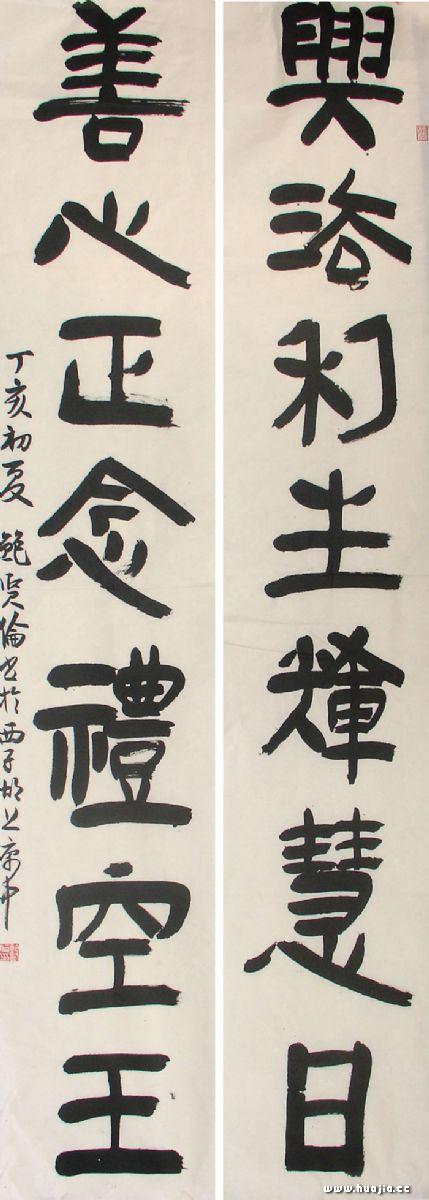 興洽利生輝慧日
善心正念禮空王
丁亥初夏 鮑賢倫书於西子湖上
www.huajia.cc